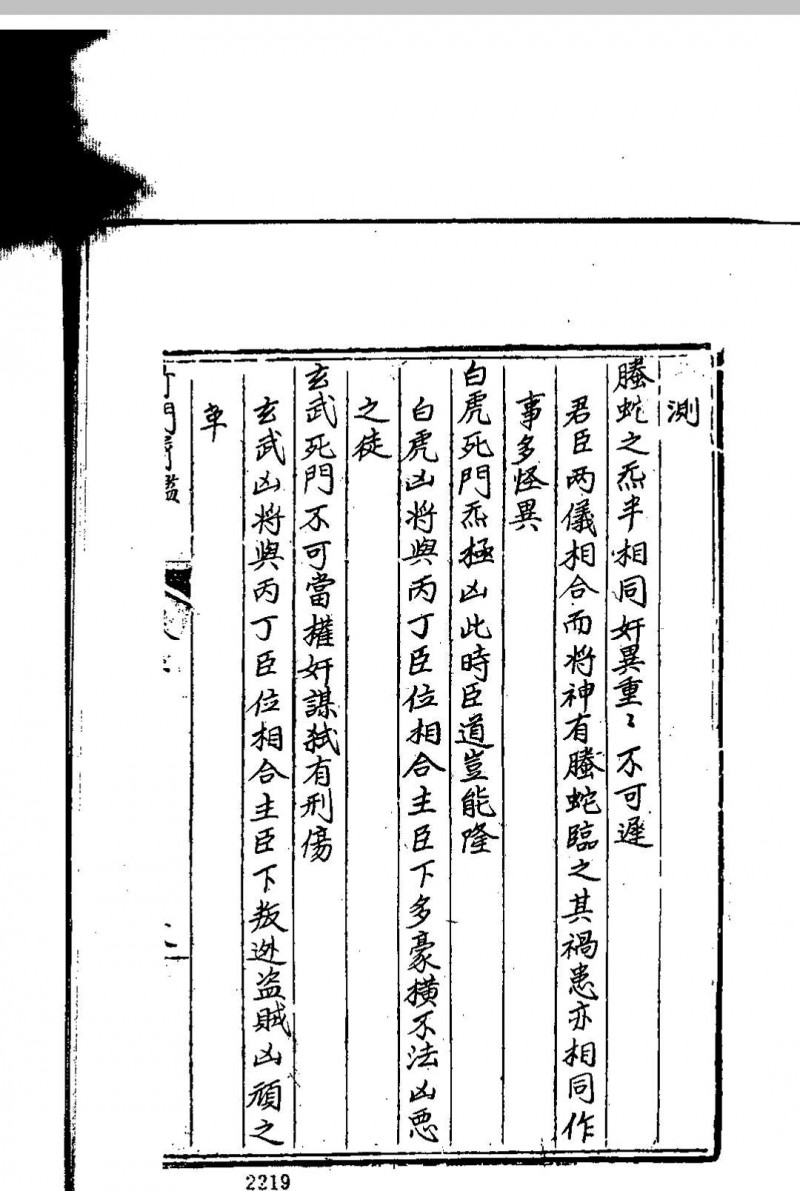 測
螣蛇之炁半相同奸異重〻不可遲
君臣两儀相合而将神有螣蛇臨之其禍患亦相同作
事多怪異
白虎死門炁極凶此時臣道豈能隆
白虎凶将與丙丁臣位相合主臣下多豪横不法凶悪
之徒
玄武死門不可當權奸謀弑有刑傷
玄武凶将與丙丁臣位相合主臣下叛逆盗賊凶頑之
車
2219